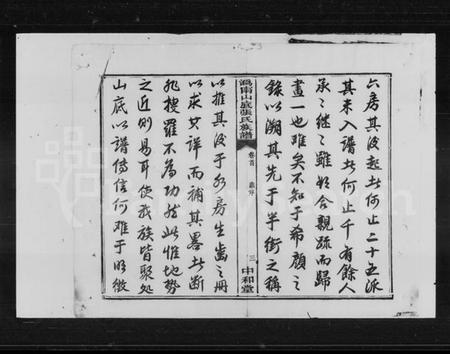 六房其後起者何止二十五派
其未入譜者何止千有餘人
承〻繼〻雖欲合親疏而歸
畫一也難矣不知于希顏之
錄以溯其先于半街之稱
溫南山底張氏族譜
卷首
三
中和堂
以推其後于各房生齒之冊
以求其詳而補其畧者斷
非搜羅不為功然此惟地勢
之近則易耳使我族皆聚處
山底以譜傳信何難于明徵